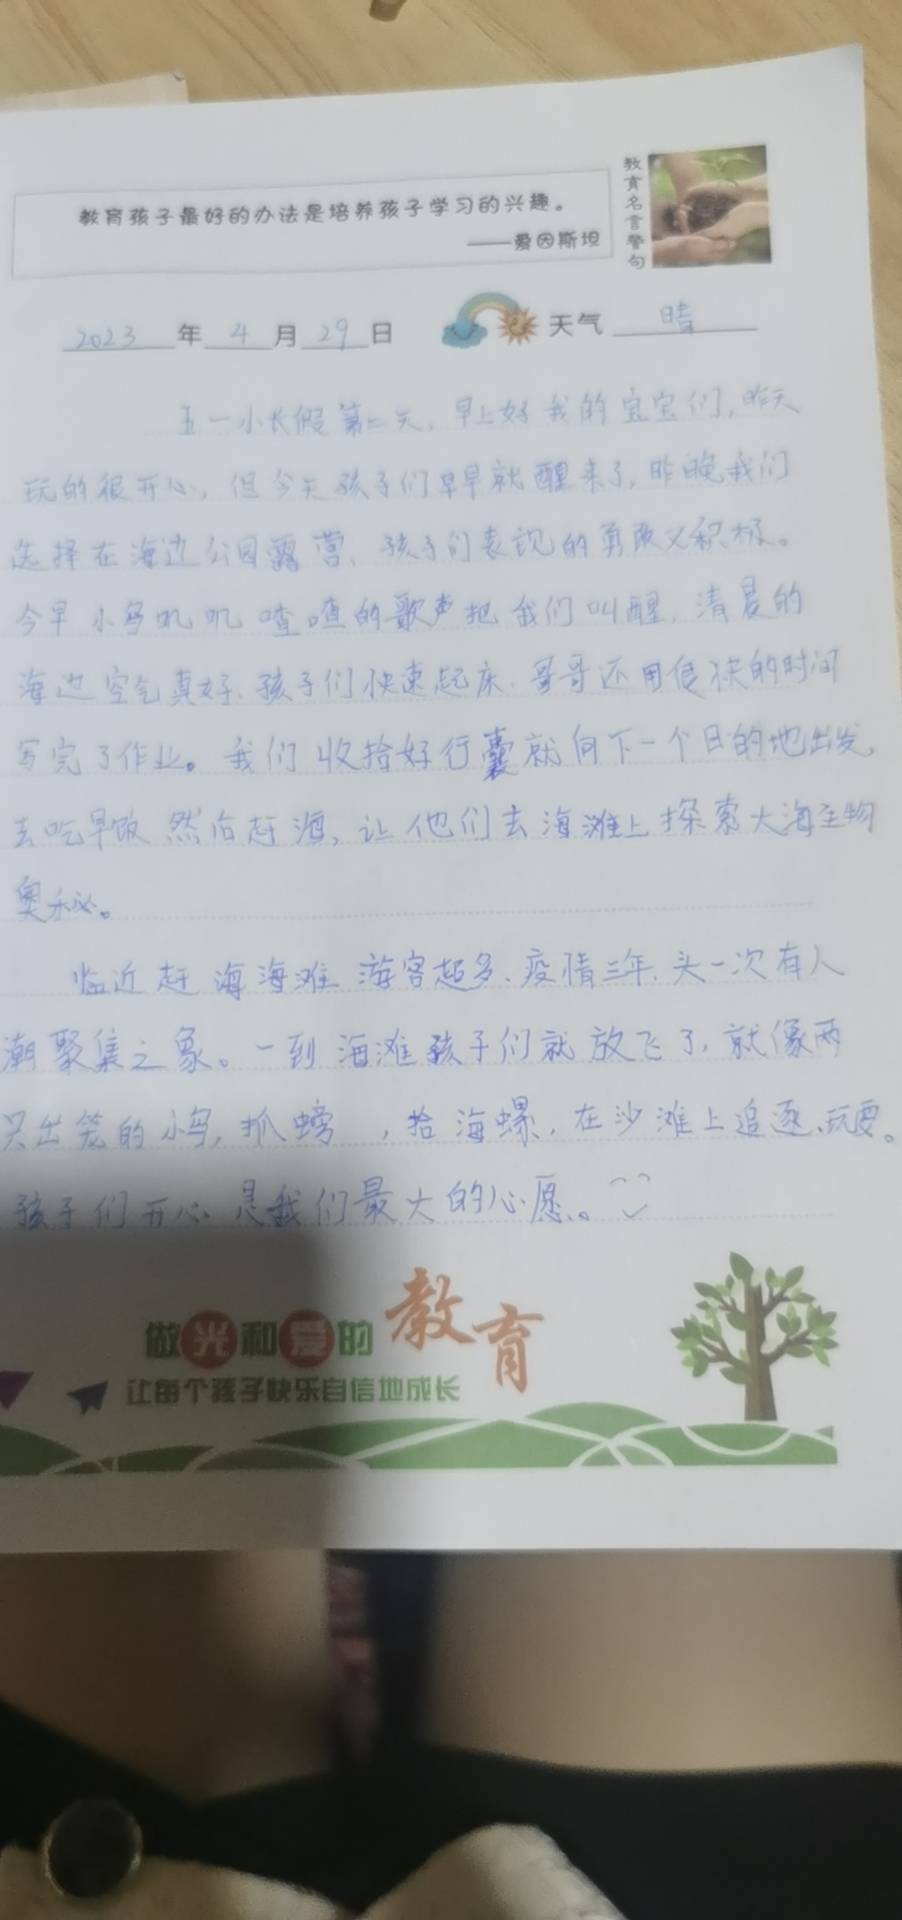 教育孩子最好的办法是培养孩子学习的兴趣。
——爱因斯坦
教育名言警句
2023年4月29日 天气 晴
五一小长假第二天，早上好我的宝宝们，昨天
玩的很开心，但今天孩子们早早就醒来了，昨晚我们
选择在海边公园露营、孩子们表现的勇敢又积极。
今早小鸟叽叽喳喳的歌声把我们叫醒，清晨的
海边空气真好、孩子们快速起床、哥哥还用很快的时间
写完了作业。我们收拾好行囊就向下一个目的地出发，
去吃早饭然后赶海，让他们去海滩上探索大海生物
奥秘。
临近赶海海滩游客超多、疫情三年、头一次有人
潮聚集之象。一到海滩孩子们就放飞了，就像两
只出笼的小鸟，抓螃，拾海螺，在沙滩上追逐、玩耍。
孩子们开心是我们最大的心愿。
做光和爱的教育
让每个孩子快乐自信地成长